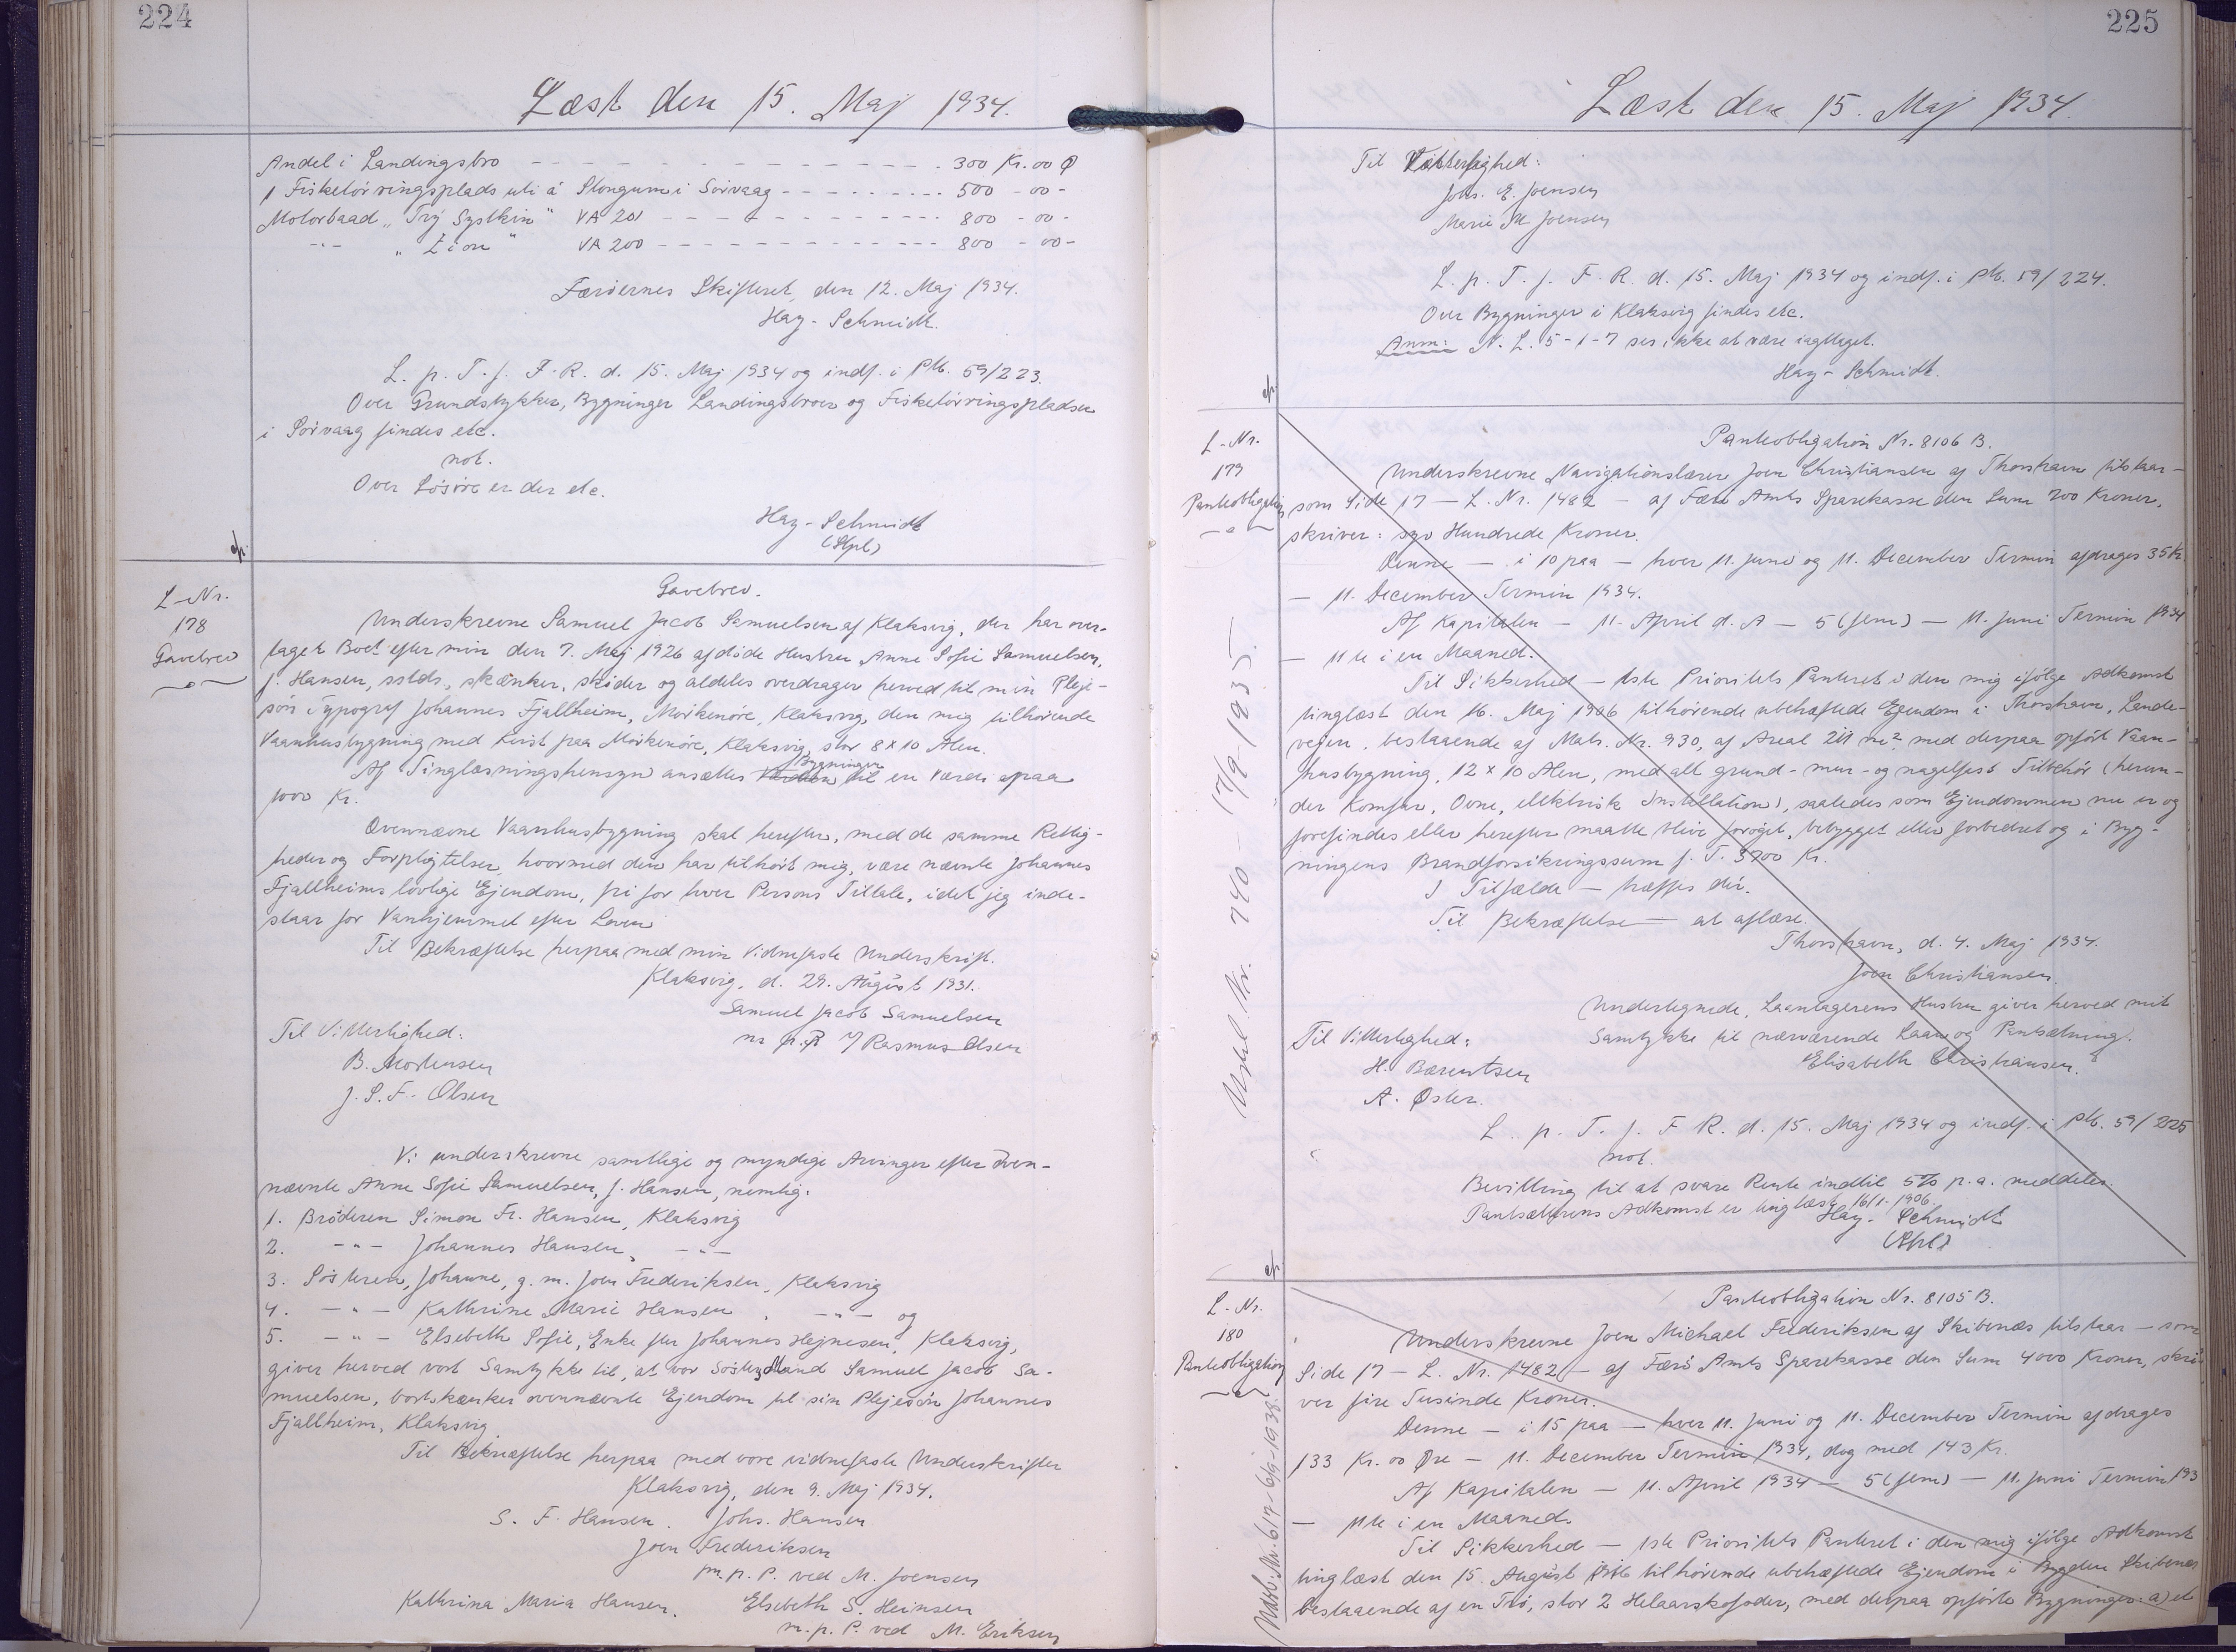 224
Læst den 15. Maj 1934.
Andel i Landingsbro 300 Kr. 00 Ø
1 Fisketörringsplads uti á Slongum i Sörvaag 500 - 00 -
Motorbaad „Trý Systkin" VA 201 800 - 00 -
-"- „Zion" VA 200 800 - 00 -
Færöernes Skifteret, den 12. Maj 1934.
Hay-Schmidt.
L. p. T. f. F. R. d. 15. Maj 1934 og indf. i Ptb. 59/223.
Over Grundstykker, Bygninger Landingsbroer og Fisketörringspladser
i Sörvaag findes etc.
not.
Over Lösöre er der etc.
Hay-Schmidt
L-Nr.
178
Gavebrev
Gavebrev.
Underskrevne Samuel Jacob Samuelsen af Klaksvig, der har over-
taget Boet efter min den 7. Maj 1926 afdöde Hustru Anne Sofie Samuelsen,
f. Hansen, sslds., skænker, sköder og aldeles overdrager herved til min Pleje-
sön Typograf Johannes Fjallheim, Mörkenöre, Klaksvig, den mig tilhörende
Vaanhusbygning med Kvist paa Mörkenöre, Klaksvig, stor 8 x 10 Alen.
Af Tinglæsningshensyn ansættes Bygningen til en Værdi apaa
1000 Kr.
Ovennævne Vaanhusbygning skal herefter, med de samme Rettig-
heder og Forpligtelser, hvormed den har tilhört mig, være nævnte Johannes
Fjallheims lovlige Ejendom, fri for hver Persons Tiltale, idet jeg inde-
staar for Vanhjemmel efter Loven
Til Bekræftelse herpaa med min vidnefaste Underskrift.
Klaksvig, d. 29. August 1931.
Samuel Jacob Samuelsen
m. p. P. v/ Rasmus Olsen
Til Vitterlighed:
B. Mortensen
J. S. F. Olsen
Vi underskrevne samtlige og myndige Arvinger efter Oven-
nævnte Anne Sofie Samuelsen, f. Hansen, nemlig:
1. Bröderen Simon Fr. Hansen, Klaksvig
2. -"- Johannes Hansen, -"-
3. Sösteren, Johanne, g. m. Joen Frederiksen, Klaksvig
4. -"- Kathrine Marie Hansen, -"- og
5. -"- Elsebeth Sofie, Enke efter Johannes Hejnesen, Klaksvig,
giver herved vort Samtykke til, at vor Sösters Mand Samuel Jacob Sa-
muelsen, bortskænker ovennævnte Ejendom til sin Plejesön Johannes
Fjallheim, Klaksvig.
Til Bekræftelse herpaa med vore vidnefaste Underskrifter
Klaksvig, den 9. Maj 1934.
S. F. Hansen. Johs. Hansen
Joen Frederiksen
m. p. P. ved M. Joensen
Kathrina Maria Hansen. Elsebeth S. Heinsen
m. p. P. ved M. Eriksen
225
Læst den 15. Maj 1934.
Til Vitterlighed:
Johs. E. Joensen
Marie M Joensen
L. p. T. f. F. R. d. 15. Maj 1934 og indf. i Ptb. 59/224.
Over Bygninger i Klaksvig findes etc.
Anm: N. L. 5-1-7 ses ikke at være iagttaget.
Hay-Schmidt.
L-Nr.
179
Panteobligation
Panteobligation Nr. 8106 B.
Underskrevne Navigationslærer Joen Christiansen af Thorshavn tilstaar —
som Side 17 — L. Nr. 1482 — af Færø Amts Sparekasse den Sum 700 Kroner,
skriver: syv Hundrede Kroner.
Denne — i 10 paa — hver 11. Juni og 11. December Termin afdrages 35 Kr.
— 11. December Termin 1934.
Af Kapitalen — 11. April d. A — 5 (fem) — 11. Juni Termin 1934
— 11te i en Maaned.
Til Sikkerhed — 1ste Prioritets Panteret i den mig ifölge Adkomst
tinglæst den 16. Maj 1906 tilhörende ubehæftede Ejendom i Thorshavn, Lande-
vejen, bestaaende af Matr. Nr. 930, af Areal 211 m² med derpaa opfört Vaan-
husbygning, 12 x 10 Alen, med alt grund- mur- og nagelfast Tilbehör (herun-
der Komfur, Ovne, elektrisk Installation), saaledes som Ejendommen nu er og
forefindes eller herefter maatte blive foröget, bebygget eller forbedret og i Byg-
ningens Brandforsikringssum f. T. 3700 Kr.
I Tilfælde — træffes dér.
Til Bekræftelse — at aflæse.
Thorshavn, d. 4. Maj 1934.
Joen Christiansen.
Undertegnede, Laantagerens Hustru giver herved mit
Samtykke til nærværende Laan og Pantsætning.
Elisabeth Christiansen.
Til Vitterlighed:
H. Bærentsen
A. Øster.
L. p. T. f. F R. d. 15. Maj 1934 og indf. i Ptb. 59/225
not.
Bevilling til at svare Rente indtil 5% p. a. meddeles.
Pantsætterens Adkomst er tinglæst 1906.
Hay-Schmidt
Udsl. Nr. 740 - 17/9 1935.
L-Nr.
180
Panteobligation
Panteobligation Nr. 8105 B.
Underskrevne Joen Michael Frederiksen af Skibenæs tilstaar — som
Side 17 — L. Nr. 1482 — af Færö Amts Sparekasse den Sum 4000 Kroner, skri-
ver fire Tusinde Kroner.
Denne — i 15 paa — hver 11. Juni og 11. December Termin afdrages
133 Kr. 00 Øre — 11. December Termin 1934, dog med 143 Kr.
Af Kapitalen — 11. April 1934 — 5 (fem) — 11. Juni Termin 193
— 11te i en Maaned.
Til Sikkerhed — 1ste Prioritets Panteret i den mig ifölge Adkomst
tinglæst den 15. August tilhörende ubehæftede Ejendom i Bygden Skibenæs
bestaaende af en Trö, stor 2 Helaarskofoder, med derpaa opförte Bygninger: a) et